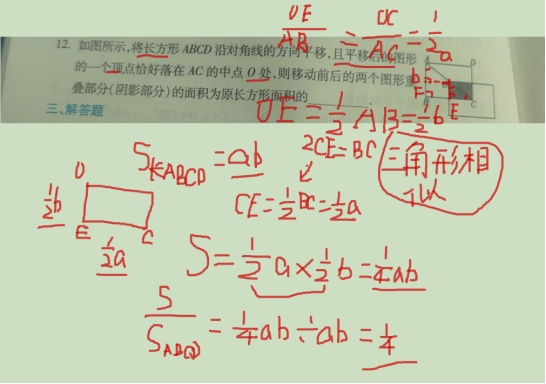 OE/AB = OC/AC = 1/2
12. 如图所示,将长方形ABCD沿对角线的方向平移,且平移后的图形
的一个顶点恰好落在AC的中点O处,则移动前后的两个图形重
叠部分(阴影部分)的面积为原长方形面积的
三、解答题
OE=1/2AB=1/2b
S长ABCD=ab
2CE=BC
三角形相似
CE=1/2BC=1/2a
O
1/2b
E
C
1/2a
S=1/2a×1/2b=1/4ab
S/SABCD=1/4ab÷ab=1/4